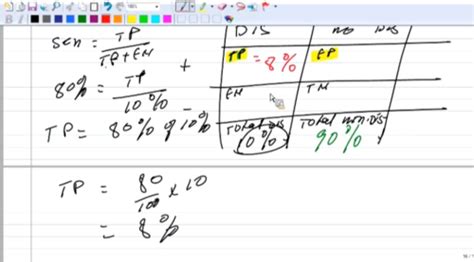 sen = TP
TP+FN
80% = TP
10%
TP = 80% of 10%
DIS
no Dis
+
TP = 8%
FP
-
FN
TN
Total Dis
10%
Total non.Dis
90%
TP = 80
100 x 10
= 8%